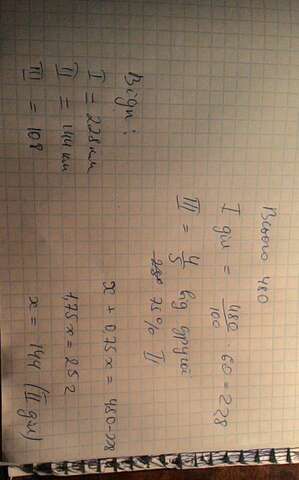 Всього 480
I діл = 480/100 · 60 = 228
III = 4/5 від другої
75% II
x + 0,75x = 480-228
1,75x = 252
x = 144 (II діл)
Відп:
I = 228 км
II = 144 км
III = 108